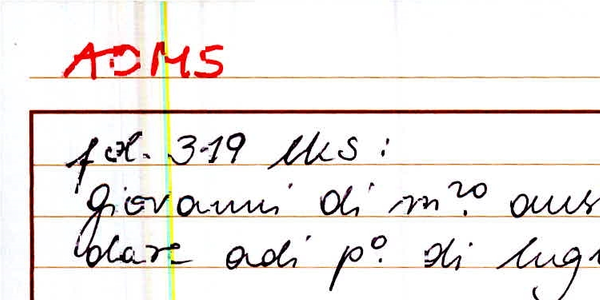 ADMS
fol. 319 lks:
giovanni di m.ro aus
dare adi p.o di lug